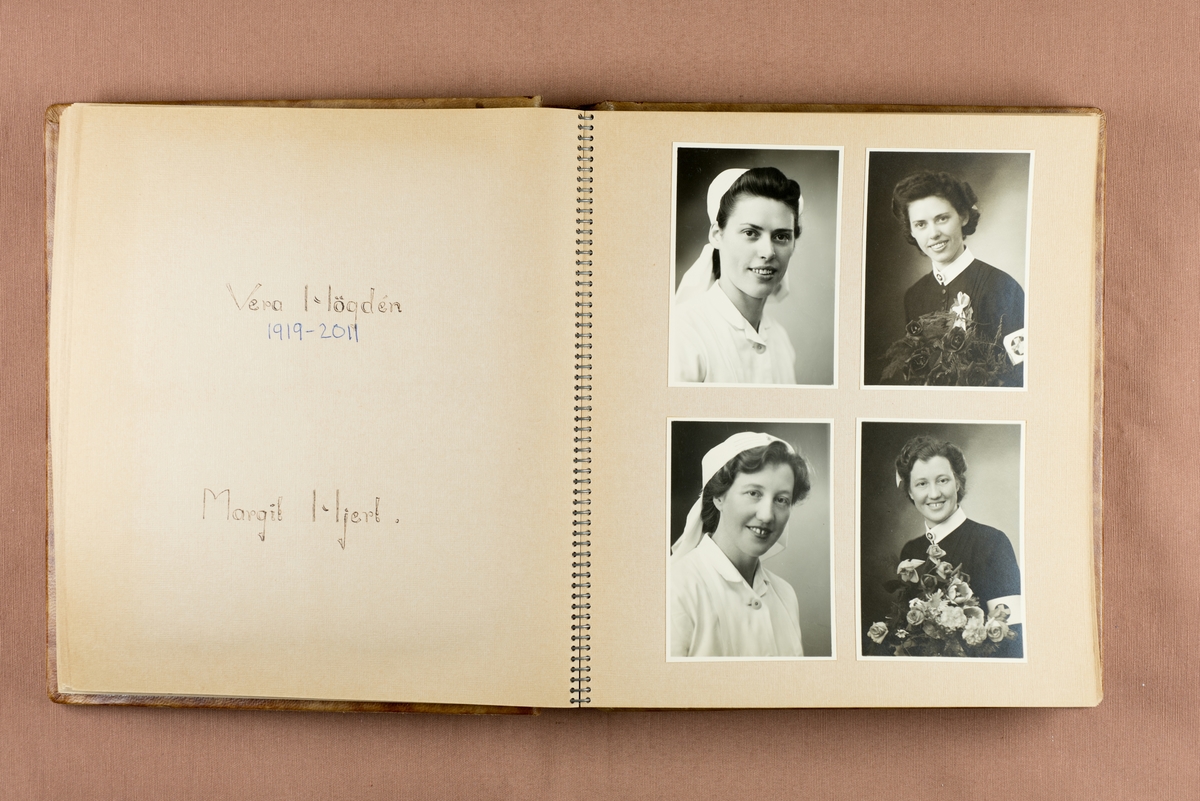 Vera Högdén
1919-2011
Margit Hjert.